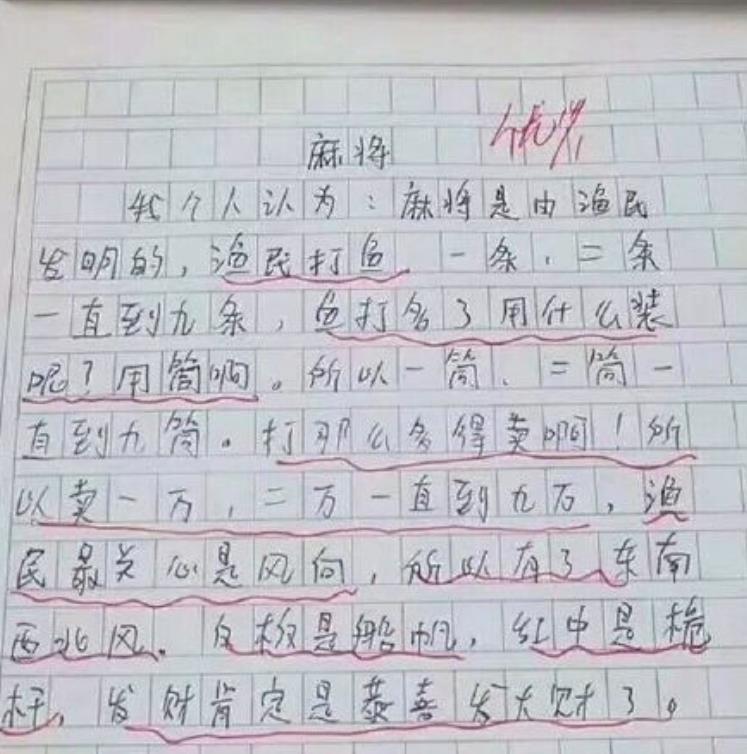 优
麻将
我个人认为：麻将是由渔民
发明的，渔民打鱼，一条、二条
一直到九条，鱼打多了用什么装
呢？用筒啊。所以一筒、二筒一
直到九筒。打那么多得卖啊！所
以卖一万，二万一直到九万，渔
民最关心是风向，所以有了东南
西北风。白板是船帆，红中是桅
杆，发财肯定是恭喜发大财了。